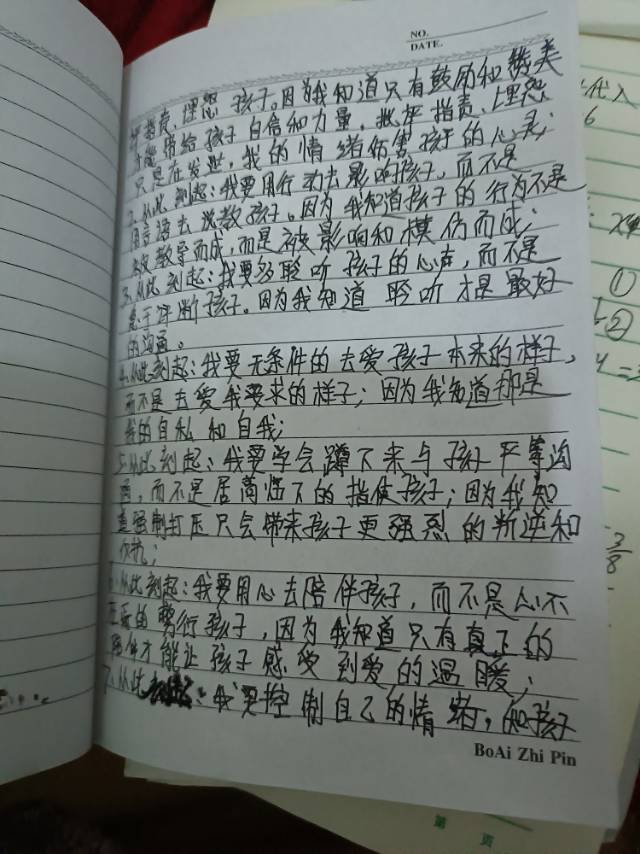 NO.
DATE.
评指责、埋怨 孩子。因为我知道只有鼓励和赞美
才能带给孩子自信和力量,批评指责、埋怨
只是在发泄,我的情绪伤害孩子的心灵;
2.从此刻起:我要用行动去影响孩子,而不是
用言语去说教孩子。因为我知道孩子的行为不是
被教导而成,而是被影响和模仿而成;
3.从此刻起:我要多聆听孩子的心声,而不是
急于评断孩子。因为我知道聆听才是最好
的沟通。
4.从此刻起:我要无条件的去爱孩子本来的样子,
而不是去爱我要求的样子;因为我知道那是
我的自私和自我;
5.从此刻起:我要学会蹲下来与孩子平等沟
通,而不是居高临下的指使孩子;因为我知
道强制打压只会带来孩子更强烈的叛逆和
反抗;
6.从此刻起:我要用心去陪伴孩子,而不是心不
在焉的敷衍孩子,因为我知道只有真正的
陪伴才能让孩子感受到爱的温暖;
7.从此刻起:我要控制自己的情绪,和孩子
BoAi Zhi Pin
代入
6
①
②
3/8
第 页